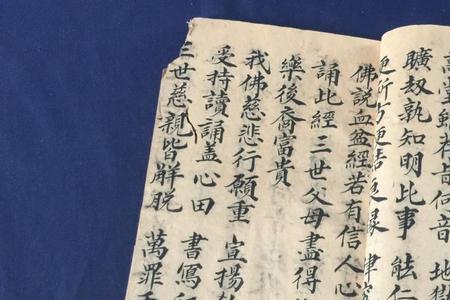 何音 地獄
曠劫孰知明此事 能仁
佛說血盆經若有信人心
誦此經三世父母盡得
樂後裔富貴
我佛慈悲行願重 宣揚
受持讀誦盖心田 書寫
三世慈親皆解脫 萬罪